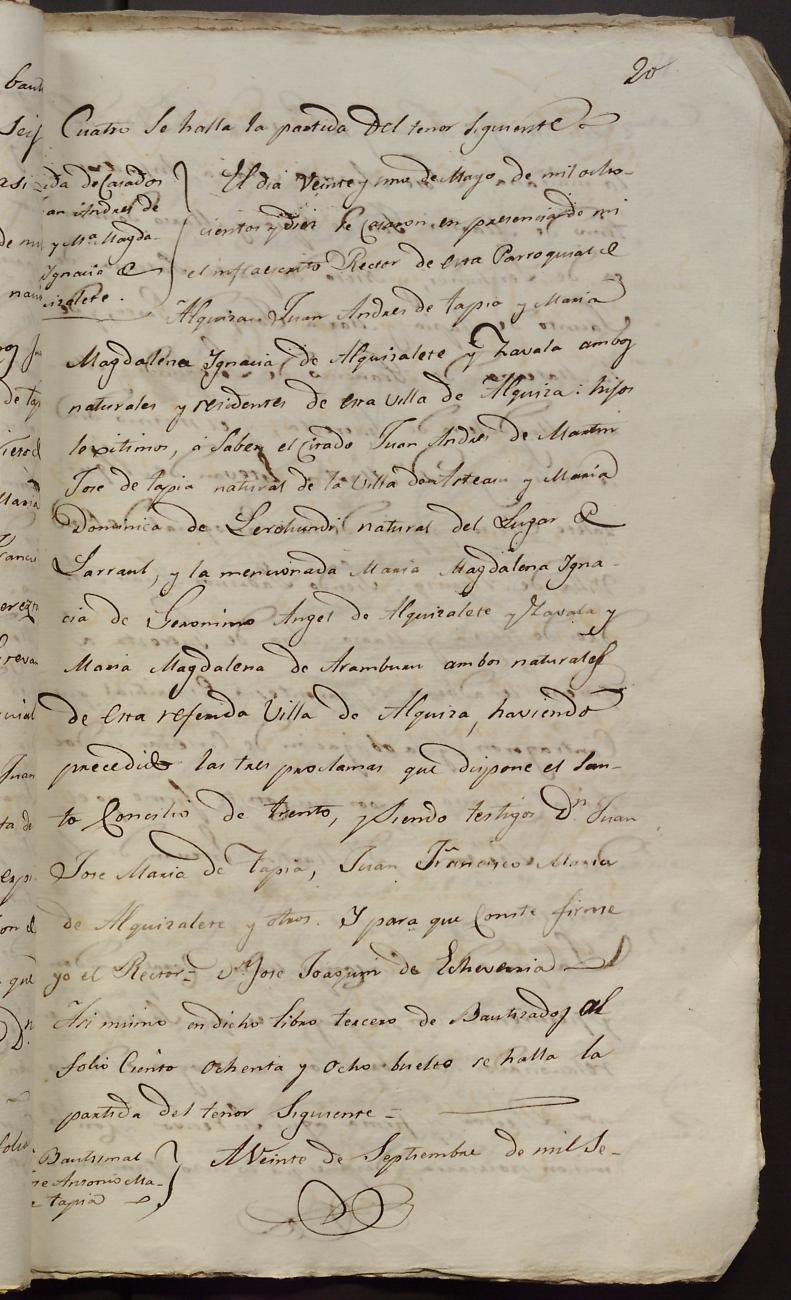 20
Cuatro se halla la partida del tenor siguiente
da de Casados
an Andres de
y Mª Magda-
Ignacia de
izalete.
El dia veinte y uno de Mayo de mil ocho-
cientos y diez se Casaron en presencia de mi
el infraescrito Rector de esta Parroquial de
Alquiza Juan Andres de tapia y Maria
Magdalena Ignacia de Alquizalete y Zavala ambos
naturales y residentes de esta villa de Alquiza: hijos
lexitimos, á Saber el citado Juan Andres de Martin
Jose de tapia natural de la Villa de Asteasu y Maria
Dominica de Lerchundi natural del Lugar de
Larraul, y la mencionada Maria Magdalena Igna-
cia de Geronimo Angel de Alquizalete y Zavala y
Maria Magdalena de Aramburu ambos naturales
de esta referida Villa de Alquiza, haviendo
precedido las tres proclamas que dispone el San-
to Concilio de trento, y siendo testigos Dn Juan
Jose Maria de Tapia, Juan Francisco Maria
de Alquizalete y otros. Y para que Conste firme
yo el Rector= Dn Jose Joaquin de Echeverria
Asi mismo en dicho libro tercero de Bautizados al
folio Ciento ochenta y ocho buelto se halla la
partida del tenor Siguiente=
Bautismal
se Antonio Ma-
tapia
A Veinte de Septiembre de mil Se-